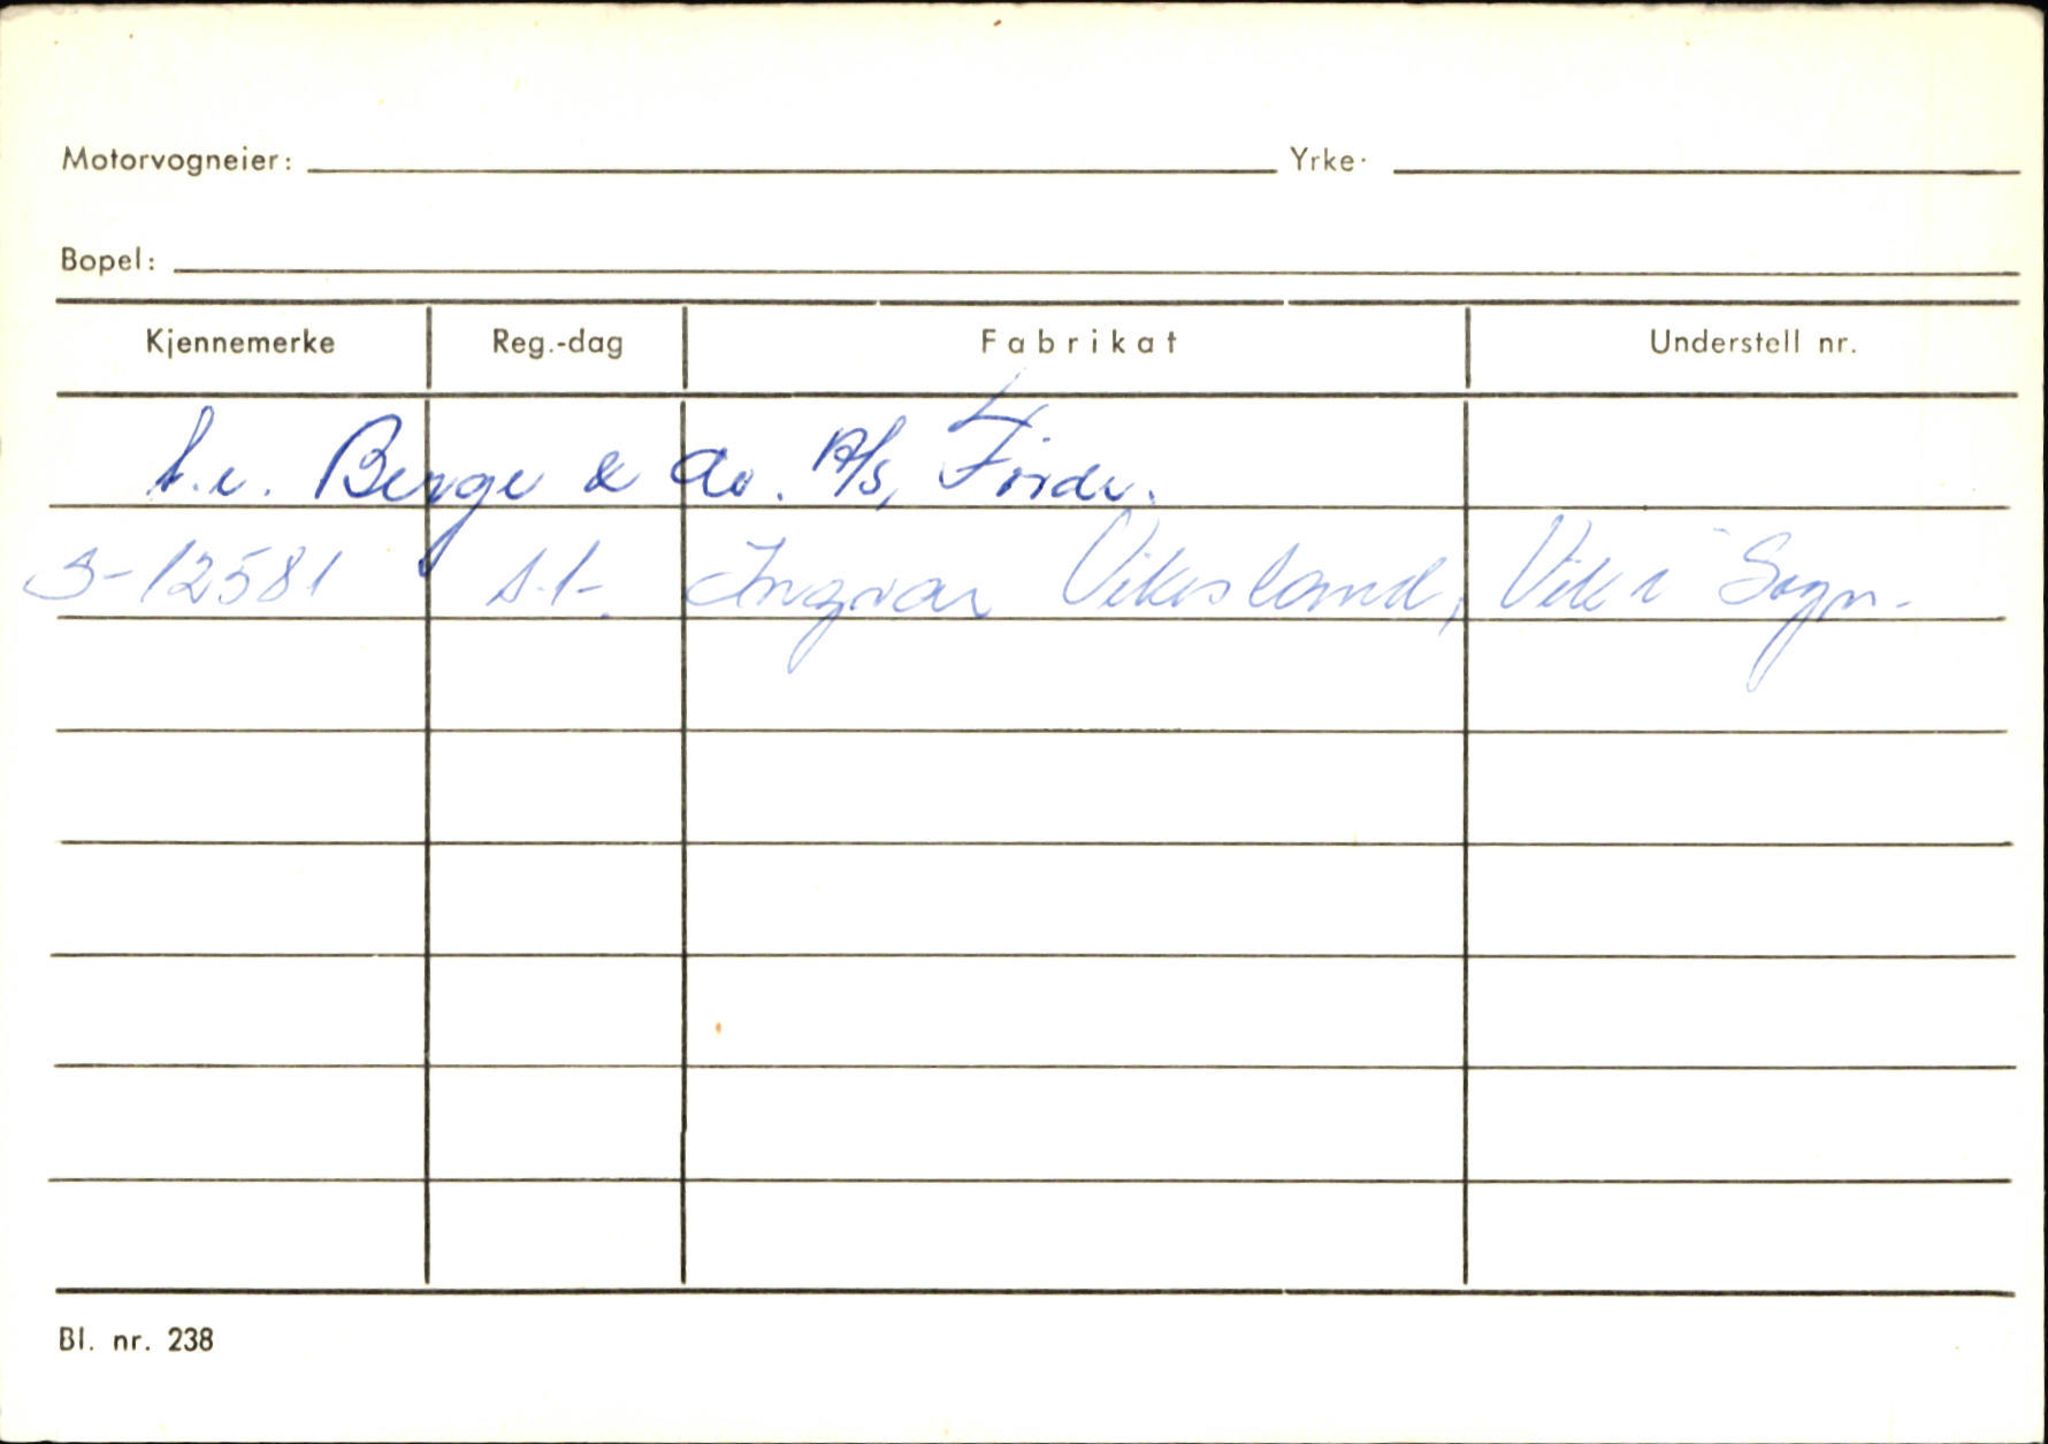 Motorvogneier: Yrke·
Bopel:
Kjennemerke Reg.-dag Fabrikat Understell nr.
t.e. Berge & Co. A/S, Førde.
S-12581 s.t. Ingvar Vikesland, Vik i Sogn.
Bl. nr. 238